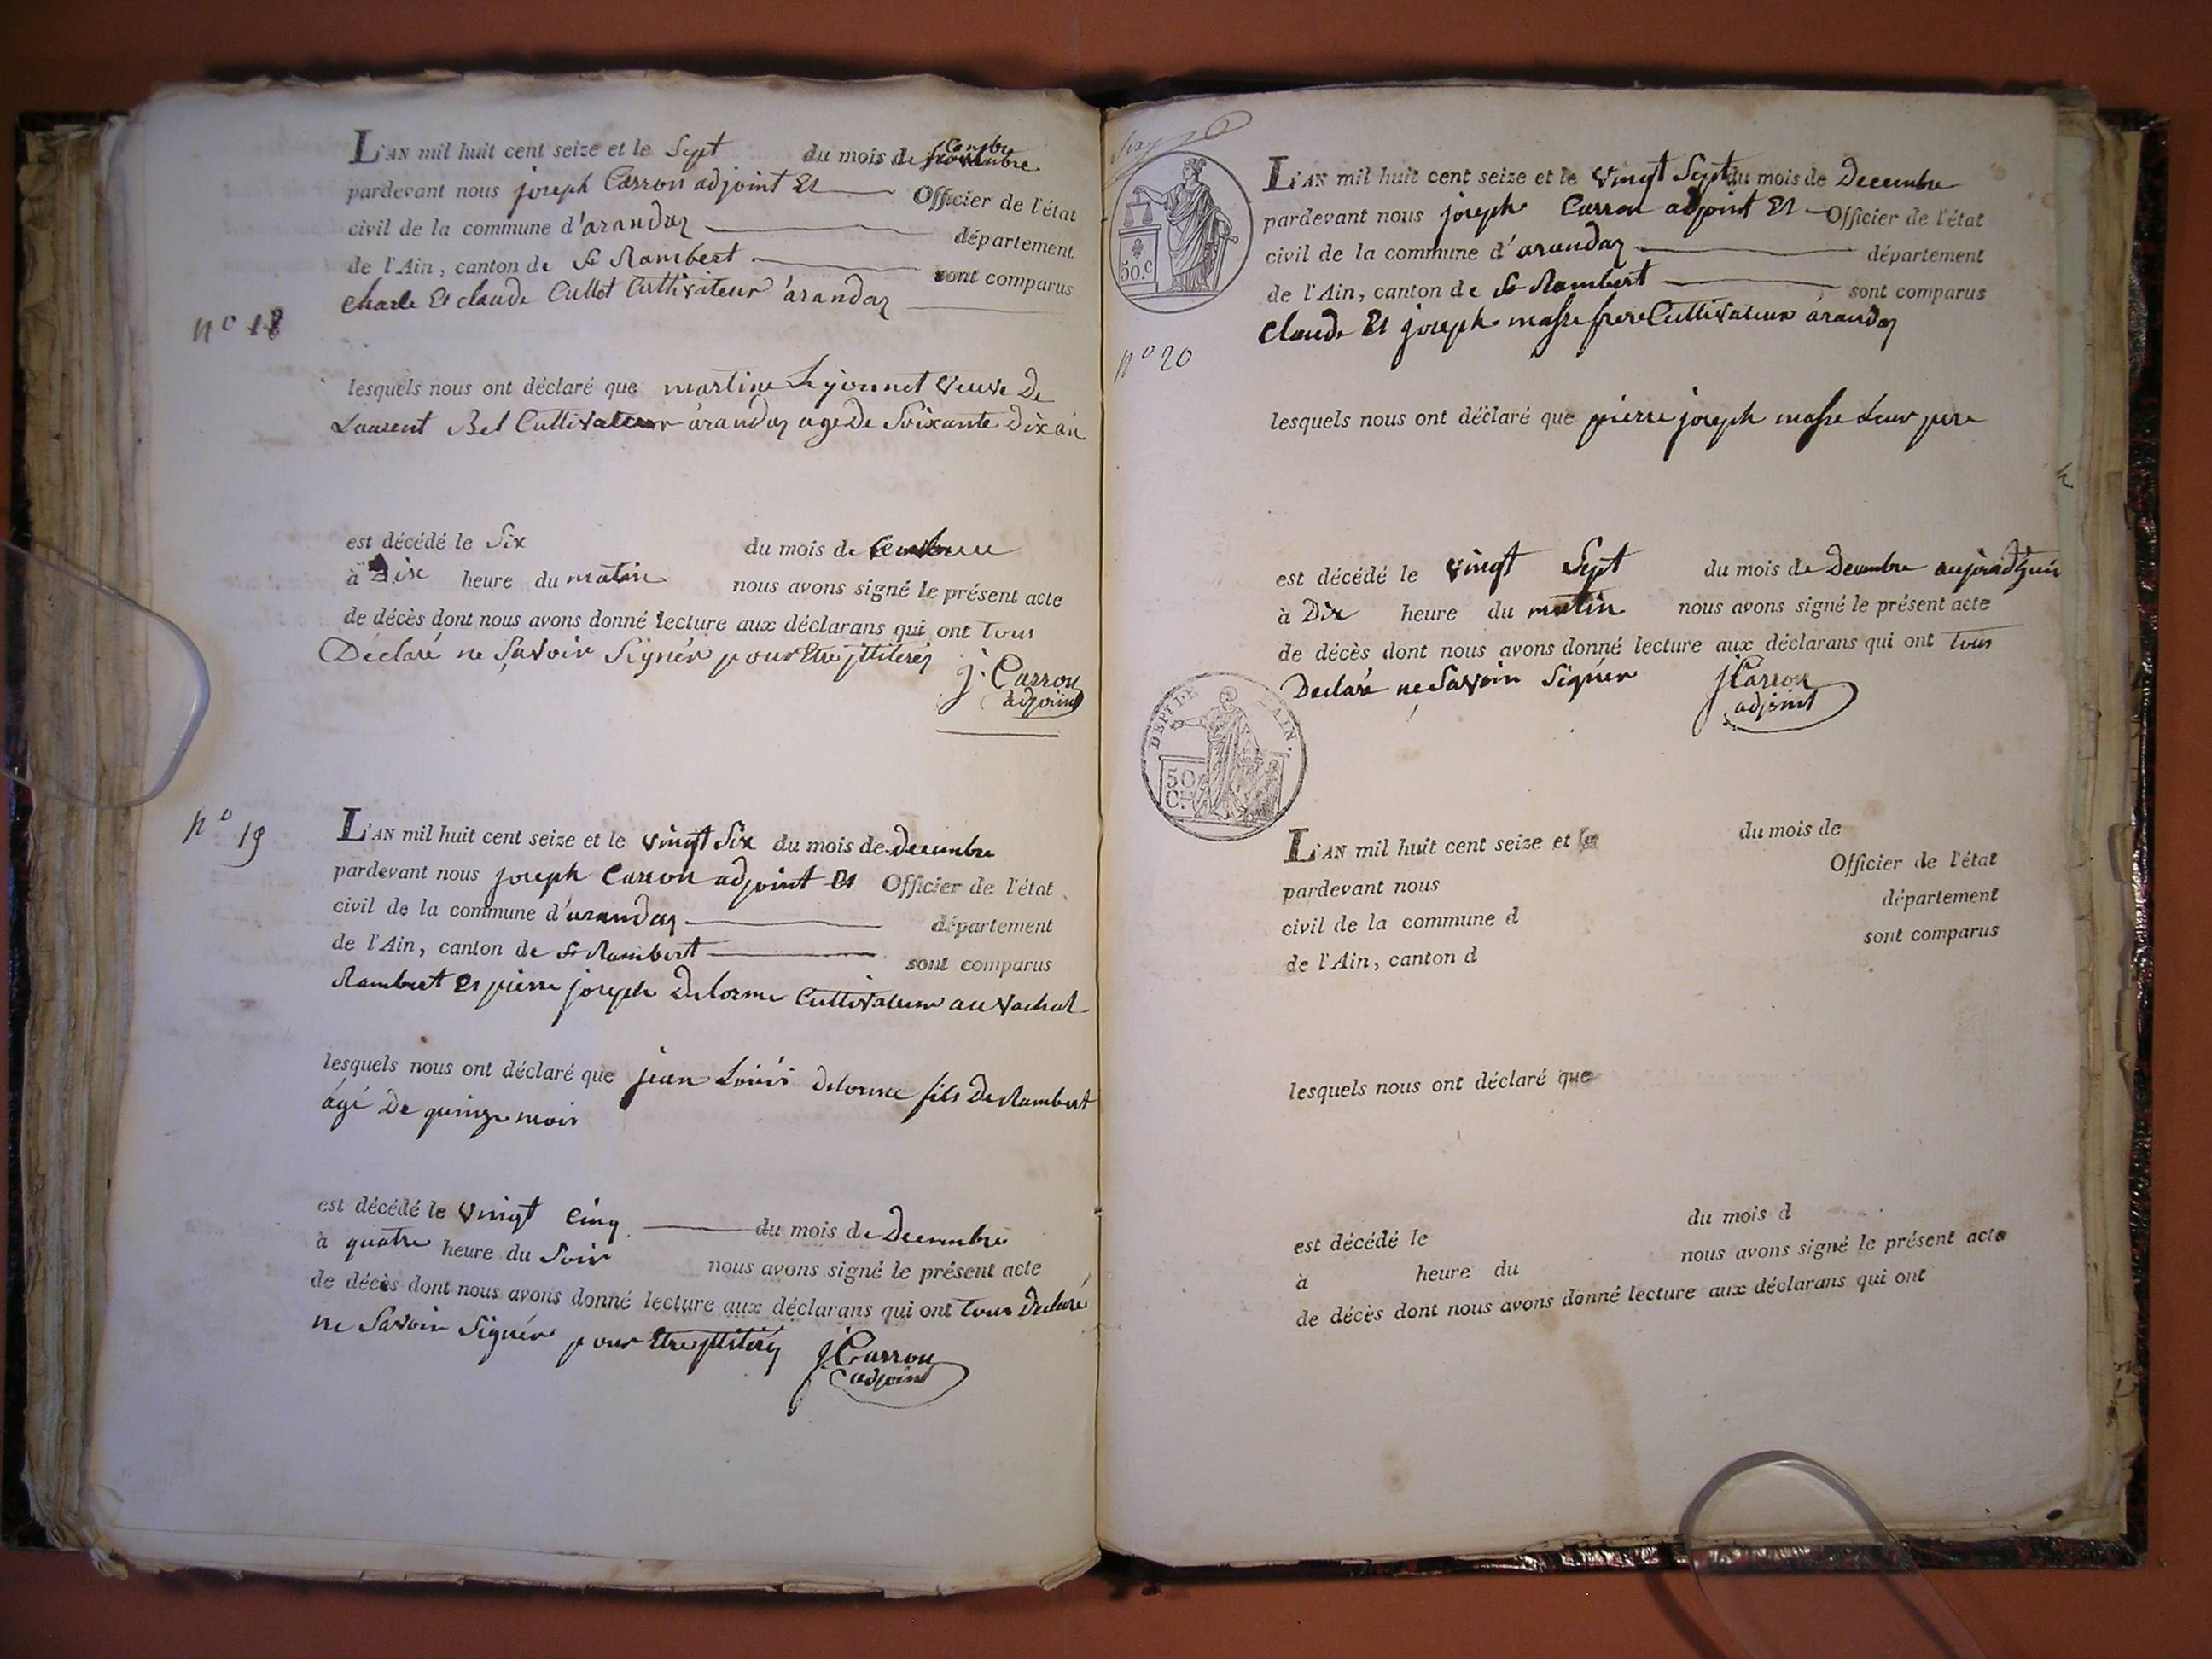 L'AN mil huit cent seize et le Sept du mois de
pardevant nous joseph Carron adjoint Et Officier de l'état
civil de la commune d'arandaz département
de l'Ain, canton de St Rambert sont comparus
Charle Et claude Cullet Cultivateur a arandaz
n° 18
lesquels nous ont déclaré que martine Lejonnet veuve De
Laurent Bel Cultivateur a arandaz age De Soixante Dix an
est décédé le Six du mois de
à Dix heure du matin nous avons signé le présent acte
de décès dont nous avons donné lecture aux déclarans qui ont tous
Déclaré ne Savoir Signér pour Etre
j. Carron
adjoint
n° 19
L'AN mil huit cent seize et le vingt Six du mois de decembre
pardevant nous joseph Carron adjoint Et Officier de l'état
civil de la commune d'arandaz département
de l'Ain, canton de St Rambert sont comparus
Rambert Et pierre joseph Delorme Cultivateur au vachat
lesquels nous ont déclaré que jean Louis delorme fils De Rambert
âgé De quinze mois
est décédé le vingt cinq du mois de Decembre
à quatre heure du Soir nous avons signé le présent acte
de décès dont nous avons donné lecture aux déclarans qui ont tous Declaré
ne Savoir Signér pour Etre
jCarron
adjoint
50.c
L'AN mil huit cent seize et le vingt Sept du mois de Decembre
pardevant nous joseph Carron adjoint Et Officier de l'état
civil de la commune d'arandaz département
de l'Ain, canton de St Rambert sont comparus
Claude Et joseph masse frere Cultivateur a arandaz
n° 20
lesquels nous ont déclaré que pierre joseph masse Leur pere
est décédé le vingt Sept du mois de Decembre aujourd'huii
à Dix heure du matin nous avons signé le présent acte
de décès dont nous avons donné lecture aux déclarans qui ont tous
Declaré ne Savoir Signér
jCarron
adjoint
DÉPT DE L'AIN.
50
C.
L'AN mil huit cent seize et le du mois de
pardevant nous Officier de l'état
civil de la commune d département
de l'Ain, canton d sont comparus
lesquels nous ont déclaré que
est décédé le du mois d
à heure du nous avons signé le présent acte
de décès dont nous avons donné lecture aux déclarans qui ont